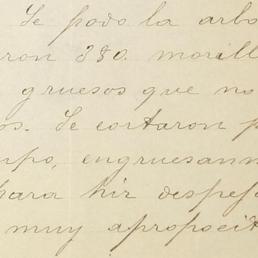 Se podo la arbo
ron 380. morill
gruesos que no
os. Se cortaron p
mpo, engruesann
para hir despe
muy apropocit